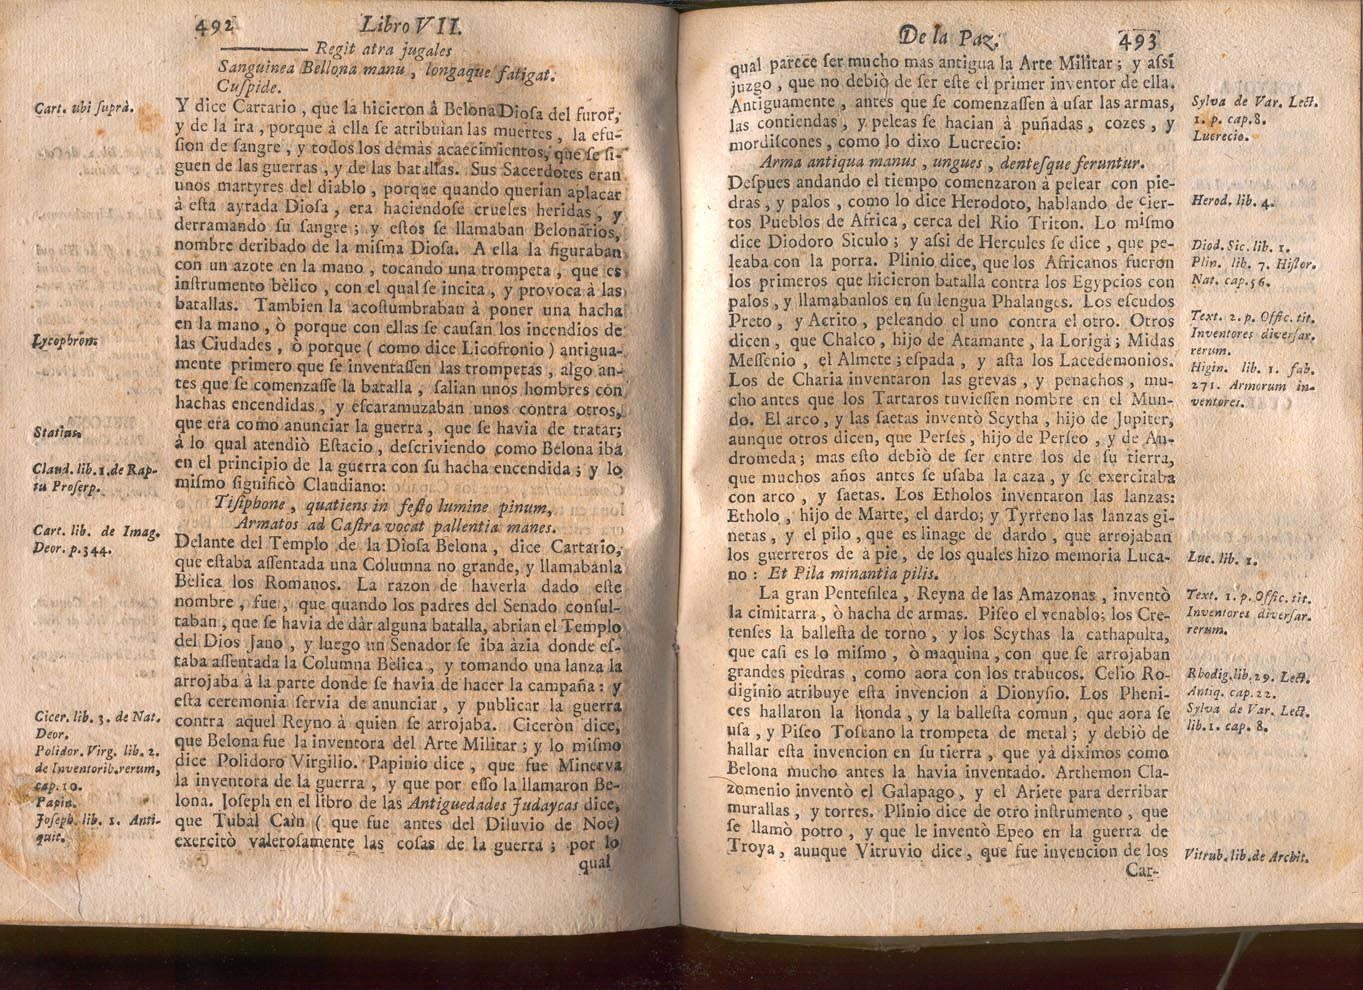 492 Libro VII.
Regit atra jugales
Sanguinea Bellona manu, longaque fatigat.
Cuspide.
Cart. ubi suprà.
Y dice Cartario, que la hicieron à Belona Diosa del furor,
y de la ira, porque à ella se atribuian las muertes, la efu-
sion de sangre, y todos los demàs acaecimientos, que se si-
guen de las guerras, y de las batallas. Sus Sacerdotes eran
unos martyres del diablo, porque quando querian aplacar
à esta ayrada Diosa, era haciendose crueles heridas, y
derramando su sangre; y estos se llamaban Belonarios,
nombre deribado de la misma Diosa. A ella la figuraban
con un azote en la mano, tocando una trompeta, que es
instrumento bèlico, con el qual se incita, y provoca à las
batallas. Tambien la acostumbraban à poner una hacha
en la mano, ò porque con ellas se causan los incendios de
Lycophròn
las Ciudades, ò porque (como dice Licofronio) antigua-
mente primero que se inventassen las trompetas, algo an-
tes que se comenzasse la batalla, salian unos hombres con
hachas encendidas, y escaramuzaban unos contra otros,
que era como anunciar la guerra, que se havia de tratar;
Statius.
à lo qual atendiò Estacio, descriviendo como Belona iba
en el principio de la guerra con su hacha encendida; y lo
Claud. lib. 1. de Rap-
tu Proserp.
mismo significò Claudiano:
Tisiphone, quatiens in festo lumine pinum,
Armatos ad Castra vocat pallentia manes.
Cart. lib. de Imag.
Deor. p. 344.
Delante del Templo de la Diosa Belona, dice Cartario,
que estaba assentada una Columna no grande, y llamabanla
Bèlica los Romanos. La razon de haverla dado este
nombre, fue, que quando los padres del Senado consul-
taban, que se havia de dàr alguna batalla, abrian el Templo
del Dios Jano, y luego un Senador se iba àzia donde es-
taba assentada la Columna Bèlica, y tomando una lanza la
arrojaba à la parte donde se havia de hacer la campaña: y
esta ceremonia servia de anunciar, y publicar la guerra
contra aquel Reyno à quien se arrojaba. Ciceròn dice,
Cicer. lib. 3. de Nat.
Deor.
que Belona fue la inventora del Arte Militar; y lo mismo
Polidor. Virg. lib. 2.
de Inventorib. rerum,
cap. 10.
dice Polidoro Virgilio. Papinio dice, que fue Minerva
la inventora de la guerra, y que por esso la llamaron Be-
Papin.
lona. Joseph en el libro de las Antiguedades Judaycas dice,
Joseph. lib. 1. Anti-
quit.
que Tubal Cain (que fue antes del Diluvio de Noe)
exercitò valerosamente las cosas de la guerra; por lo
qual
De la Paz. 493
qual parece ser mucho mas antigua la Arte Militar; y assi
juzgo, que no debiò de ser este el primer inventor de ella.
Antiguamente, antes que se comenzassen à usar las armas,
Sylva de Var. Lect.
1. p. cap. 8.
las contiendas, y peleas se hacian à puñadas, cozes, y
Lucrecio.
mordiscones, como lo dixo Lucrecio:
Arma antiqua manus, ungues, dentesque feruntur.
Despues andando el tiempo comenzaron à pelear con pie-
Herod. lib. 4.
dras, y palos, como lo dice Herodoto, hablando de cier-
tos Pueblos de Africa, cerca del Rio Triton. Lo mismo
Diod. Sic. lib. 1.
dice Diodoro Siculo; y assi de Hercules se dice, que pe-
Plin. lib. 7. Histor.
Nat. cap. 56.
leaba con la porra. Plinio dice, que los Africanos fueron
los primeros que hicieron batalla contra los Egypcios con
palos, y llamabanlos en su lengua Phalanges. Los escudos
Text. 2. p. Offic. tit.
Inventores diversar.
rerum.
Preto, y Acrito, peleando el uno contra el otro. Otros
dicen, que Chalco, hijo de Atamante, la Loriga; Midas
Higin. lib. 1. fab.
271. Armorum in-
ventores.
Messenio, el Almete; espada, y asta los Lacedemonios.
Los de Charia inventaron las grevas, y penachos, mu-
cho antes que los Tartaros tuviessen nombre en el Mun-
do. El arco, y las saetas inventò Scytha, hijo de Jupiter,
aunque otros dicen, que Perses, hijo de Perseo, y de An-
dromeda; mas esto debiò de ser entre los de su tierra,
que muchos años antes se usaba la caza, y se exercitaba
con arco, y saetas. Los Etholos inventaron las lanzas:
Etholo, hijo de Marte, el dardo; y Tyrreno las lanzas gi-
netas, y el pilo, que es linage de dardo, que arrojaban
Luc. lib. 1.
los guerreros de à pie, de los quales hizo memoria Luca-
no: Et Pila minantia pilis.
Text. 1. p. Offic. tit.
Inventores diversar.
rerum.
La gran Pentesilea, Reyna de las Amazonas, inventò
la cimitarra, ò hacha de armas. Piseo el venablo; los Cre-
tenses la ballesta de torno, y los Scythas la cathapulta,
que casi es lo mismo, ò maquina, con que se arrojaban
Rhodig. lib. 29. Lect.
Antiq. cap. 22.
grandes piedras, como aora con los trabucos. Celio Ro-
diginio atribuye esta invencion à Dionysio. Los Pheni-
Sylva de Var. Lect.
lib. 1. cap. 8.
ces hallaron la honda, y la ballesta comun, que aora se
usa, y Piseo Toscano la trompeta de metal; y debiò de
hallar esta invencion en su tierra, que yà diximos como
Belona mucho antes la havia inventado. Arthemon Cla-
zomenio inventò el Galapago, y el Ariete para derribar
murallas, y torres. Plinio dice de otro instrumento, que
se llamò potro, y que le inventò Epeo en la guerra de
Vitrub. lib. de Archit.
Troya, aunque Vitruvio dice, que fue invencion de los
Car-